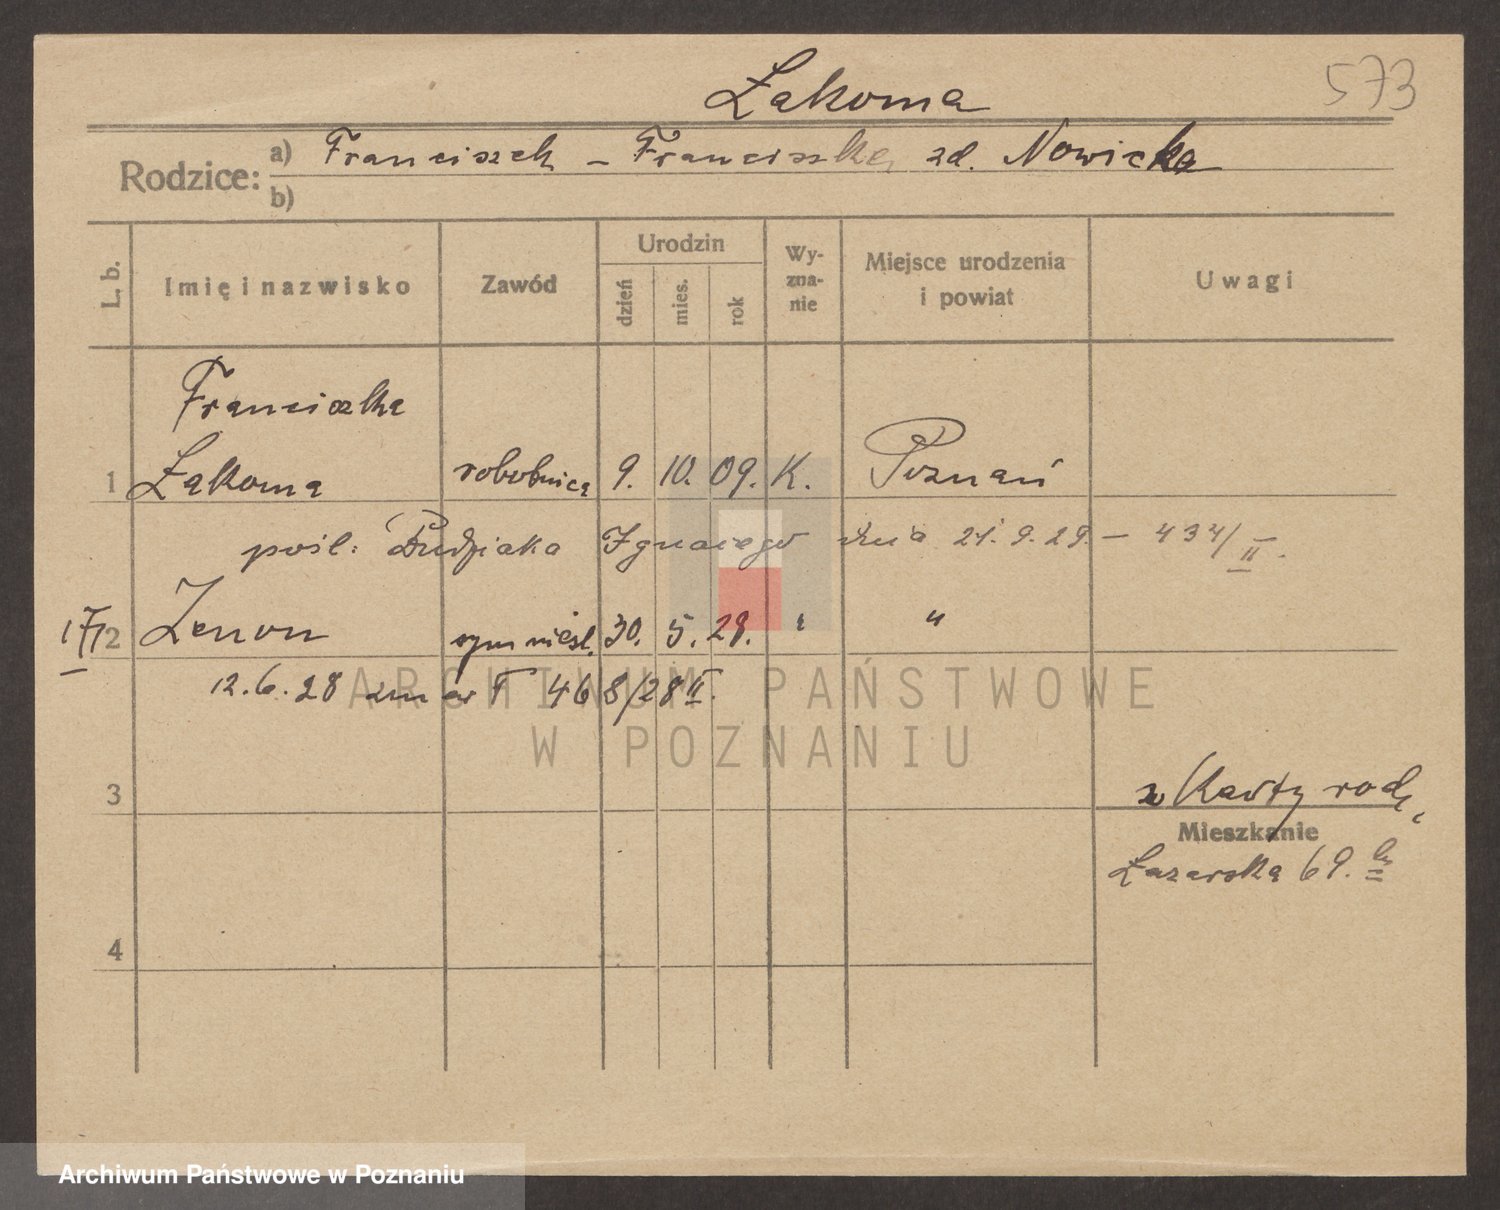 573
Łakoma
Rodzice: a) Franciszek – Franciszka zd. Nowicka
b)
L. b. Imię i nazwisko Zawód Urodzin dzień mies. rok Wy-zna-nie Miejsce urodzenia i powiat Uwagi
Franciszka
1 Łakoma robotnica 9. 10. 09. K. Poznań
pośl: Budziaka Ignacego dnia 21. 9. 29. – 434/II.
2 Zenon syn nieśl. 30. 5. 28. " "
12. 6. 28 zmarł 468/28 II.
ARCHIWUM PAŃSTWOWE
W POZNANIU
3 z Karty rodz.
Mieszkanie
Łazarska 69.
4
Archiwum Państwowe w Poznaniu